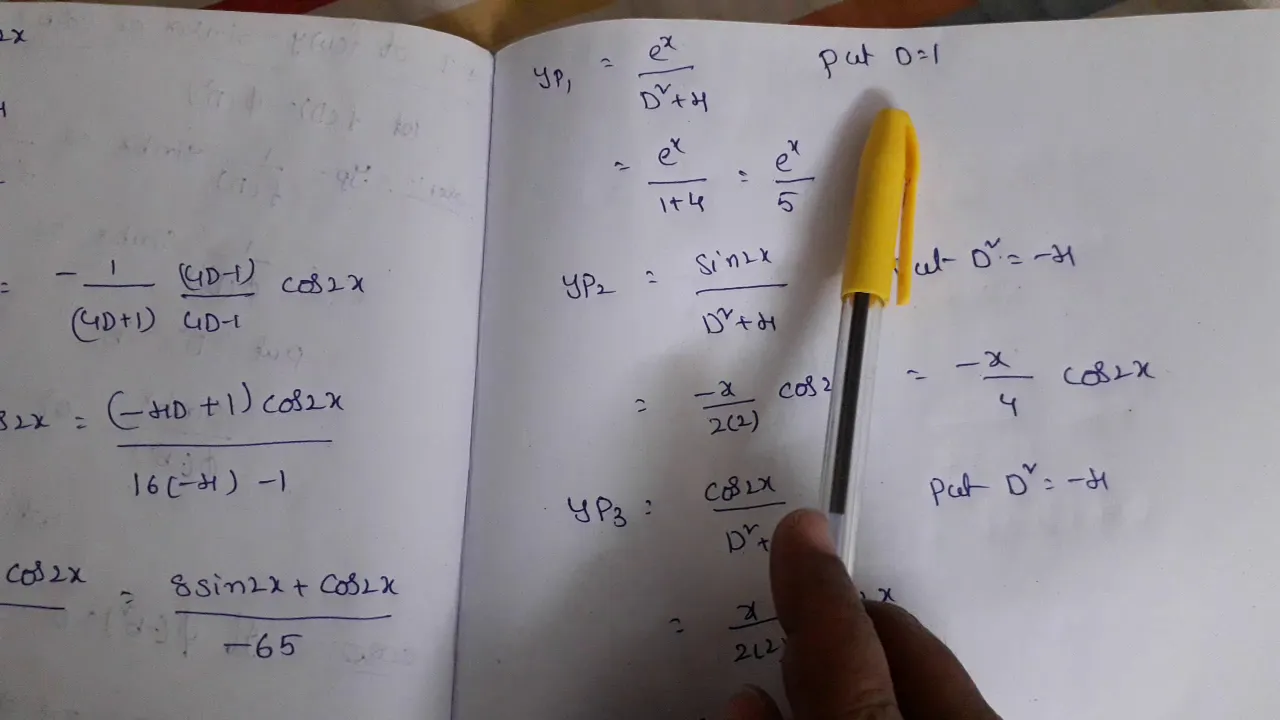 2x
= - 1/(4D+1) (4D-1)/(4D-1) cos2x
s2x = (-4D+1) cos2x / 16(-4) -1
cos2x = 8sin2x + cos2x / -65
yp₁ = eˣ / D²+4 put D=1
= eˣ / 1+4 = eˣ / 5
yp₂ = sin2x / D²+4 put D² = -4
= -x / 2(2) cos2 = -x / 4 cos2x
yp₃ = cos2x / D²+ put D² = -4
= x / 2(2) x